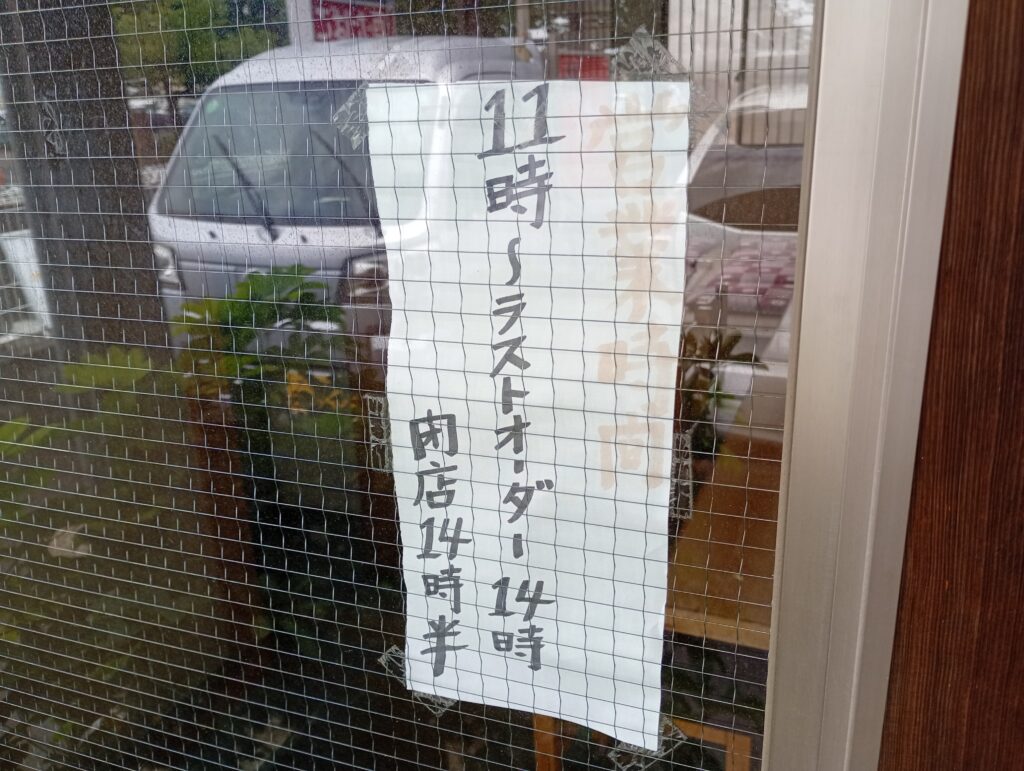 営業時間
11時〜ラストオーダー14時
閉店14時半